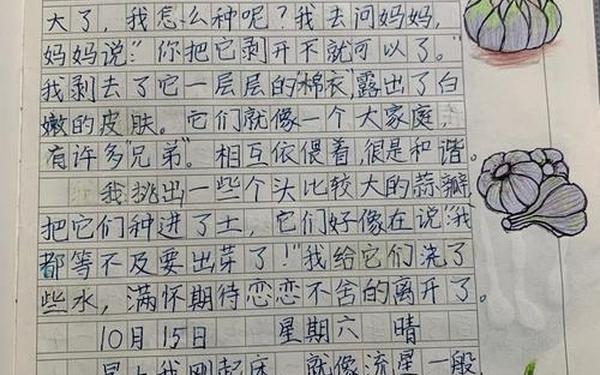 大了，我怎么种呢？我去问妈妈，
妈妈说：“你把它剥开不就可以了。”
我剥去了它一层层的“棉衣”，露出了白
嫩的皮肤。它们就像一个大家庭，
有许多“兄弟”。相互依偎着，很是和谐。
我挑出一些个头比较大的蒜瓣，
把它们种进了土，它们好像在说“我
都等不及要出芽了！”我给它们浇了
些水，满怀期待恋恋不舍的离开了。
10月15日 星期六 晴
早上我刚起床，就像流星一般